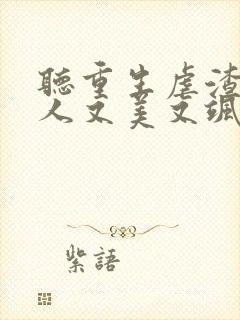 聽重生虐渣
人又美又颯
紫語